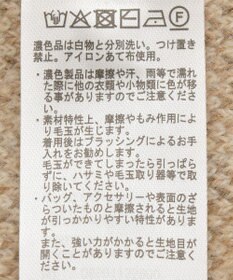 濃色品は白物と分別洗い。つけ置き
禁止。アイロンあて布使用。
・濃色製品は摩擦や汗、雨等で濡れ
た際に他の衣類や小物類に色が移
る事がありますのでご注意くださ
い。
・素材特性上、摩擦やもみ作用によ
り毛玉が生じます。
着用後はブラッシングによるお手
入れをお勧めします。
毛玉ができてしまったら引っぱら
ずに、ハサミや毛玉取り器等で取
り除いてください。
・バッグ、アクセサリーや表面のざ
らついたものと摩擦されると生地
が引っかかりやすい特性がありま
す。
また、強い力がかかると生地目が
開くことがありますのでご注意く
ださい。